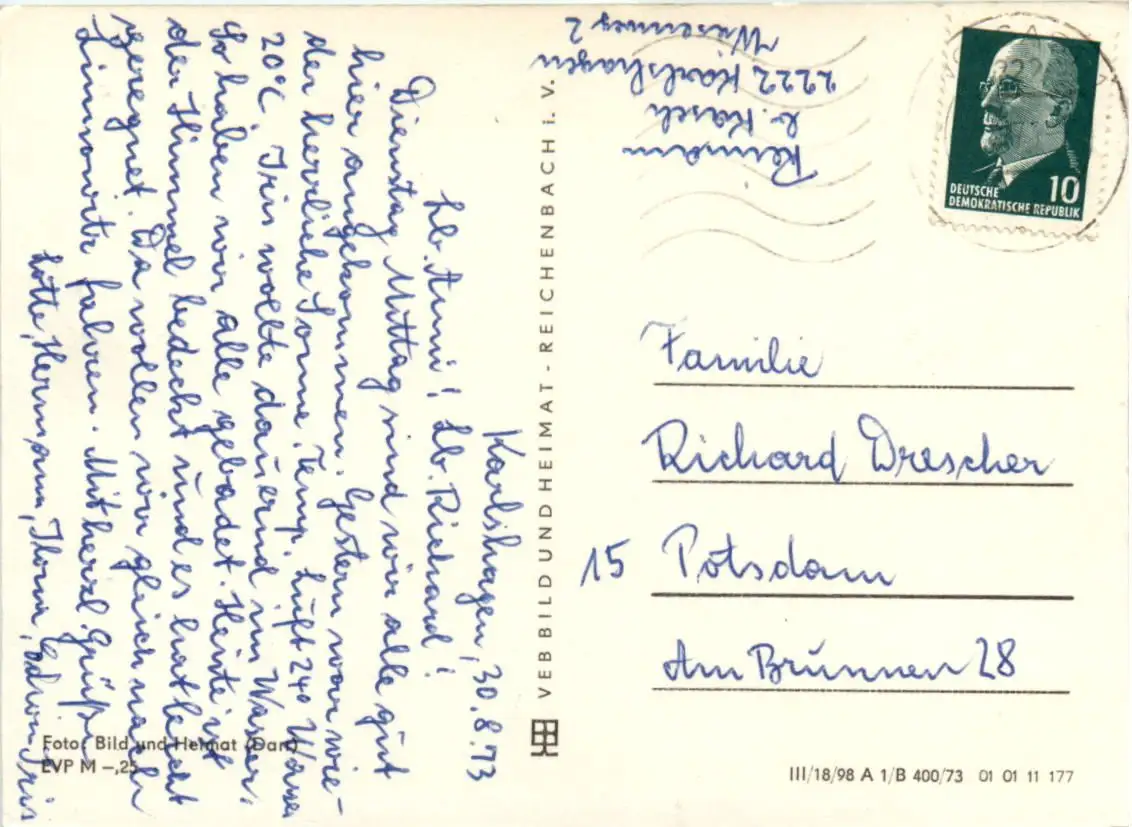 Karlshagen, 30.8.73
Lb. Anni! Lb. Richard!
Dienstag Mittag sind wir alle gut
hier angekommen. Gestern war wie-
der herrliche Sonne. Temp. Luft 24° Wasser
20°C Iris wollte dauernd im Wasser.
So haben wir alle gebadet. Heute ist
der Himmel bedeckt und es hat leicht
geregnet. Da wollen wir gleich nach
Zinnowitz fahren. Mit herzl. Grüßen
Lotte, Hermann, Thom, Edwin, Iris
Foto: Bild und Heimat (Dart)
EVP M –,25
VEB BILD UND HEIMAT - REICHENBACH i. V.
Reimann
b. Kasch
2222 Karlshagen
Wiesenweg 2
DEUTSCHE
DEMOKRATISCHE REPUBLIK
10
Familie
Richard Drescher
15 Potsdam
Am Brunnen 28
III/18/98 A 1/B 400/73 01 01 11 177